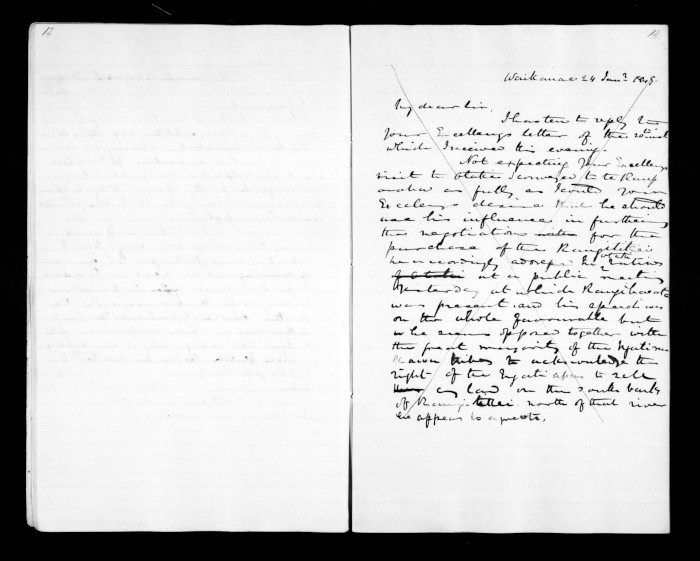 12
12
Waikanae 24 Jany. 1849.
My dear Sir.
I hasten to reply to
your Excellencys letter of the 20th inst
which I received this evening.
Not expecting Your Excellencys
visit to Otaki conveyed to te Raup
araha as fully as I could your
Excellencys desire that he should
use his influence in furthering
the negotiation with for the
purchase of the Rangitikei
he accordingly address the natives
of Otaki at a public meeting
Yesterday at which Rangihaeata
was present and his speech was
on the whole favourable but
he seems opposed together with
the great majority of the Ngatirau
kawa tribes to acknowledge the
right of the Ngatiapas to sell
any land on the south bank
of Rangitikei north of that river
he appears to agree to.